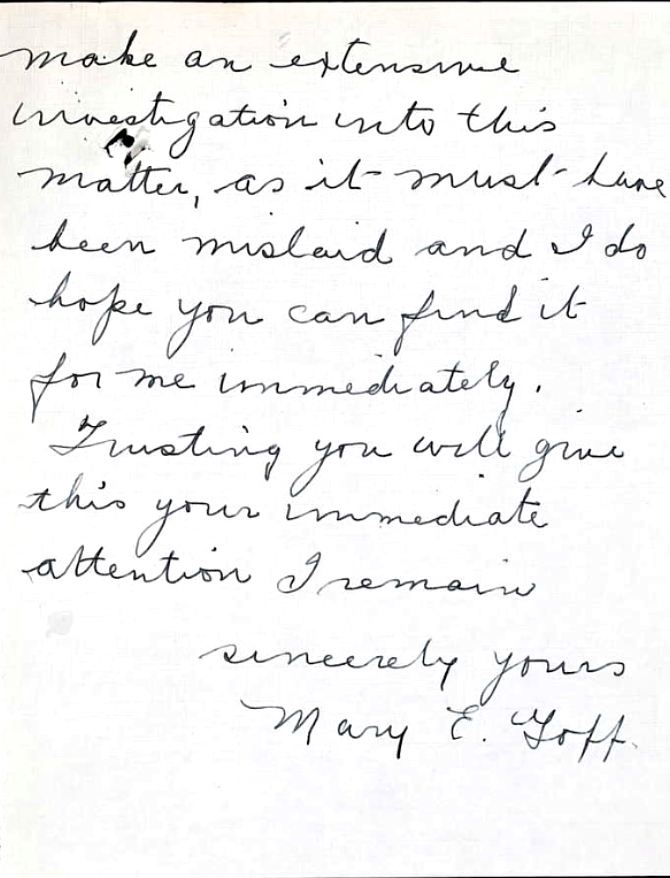 make an extensive
investigation into this
matter, as it must have
been mislaid and I do
hope you can find it
for me immediately.
Trusting you will give
this your immediate
attention I remain
sincerely yours
Mary E. Goff.